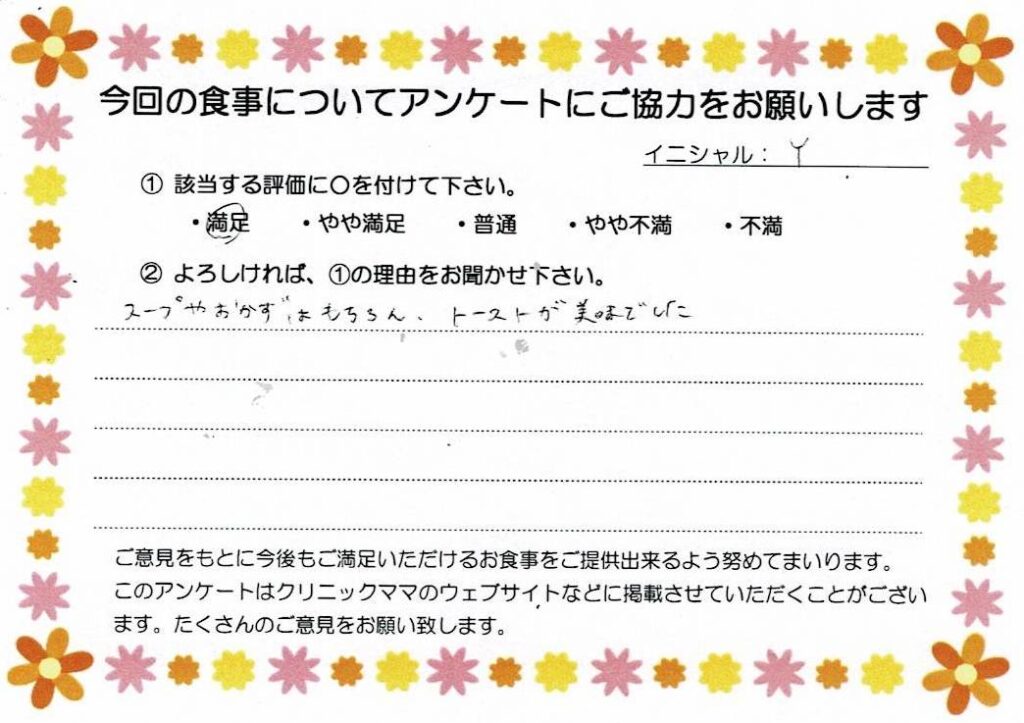 今回の食事についてアンケートにご協力をお願いします
イニシャル： Y
① 該当する評価に〇を付けて下さい。
・満足 ・やや満足 ・普通 ・やや不満 ・不満
② よろしければ、①の理由をお聞かせ下さい。
スープやおかずはもちろん、トーストが美味でした
ご意見をもとに今後もご満足いただけるお食事をご提供出来るよう努めてまいります。
このアンケートはクリニックママのウェブサイトなどに掲載させていただくことがござい
ます。たくさんのご意見をお願い致します。